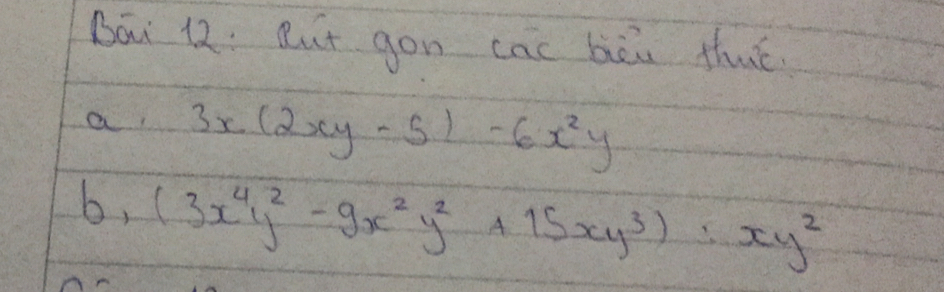 Bài 12: Rút gọn các biểu thức.
a. 3x(2xy - 5) - 6x²y
b, (3x⁴y² - 9x²y² + 15xy³) : xy²